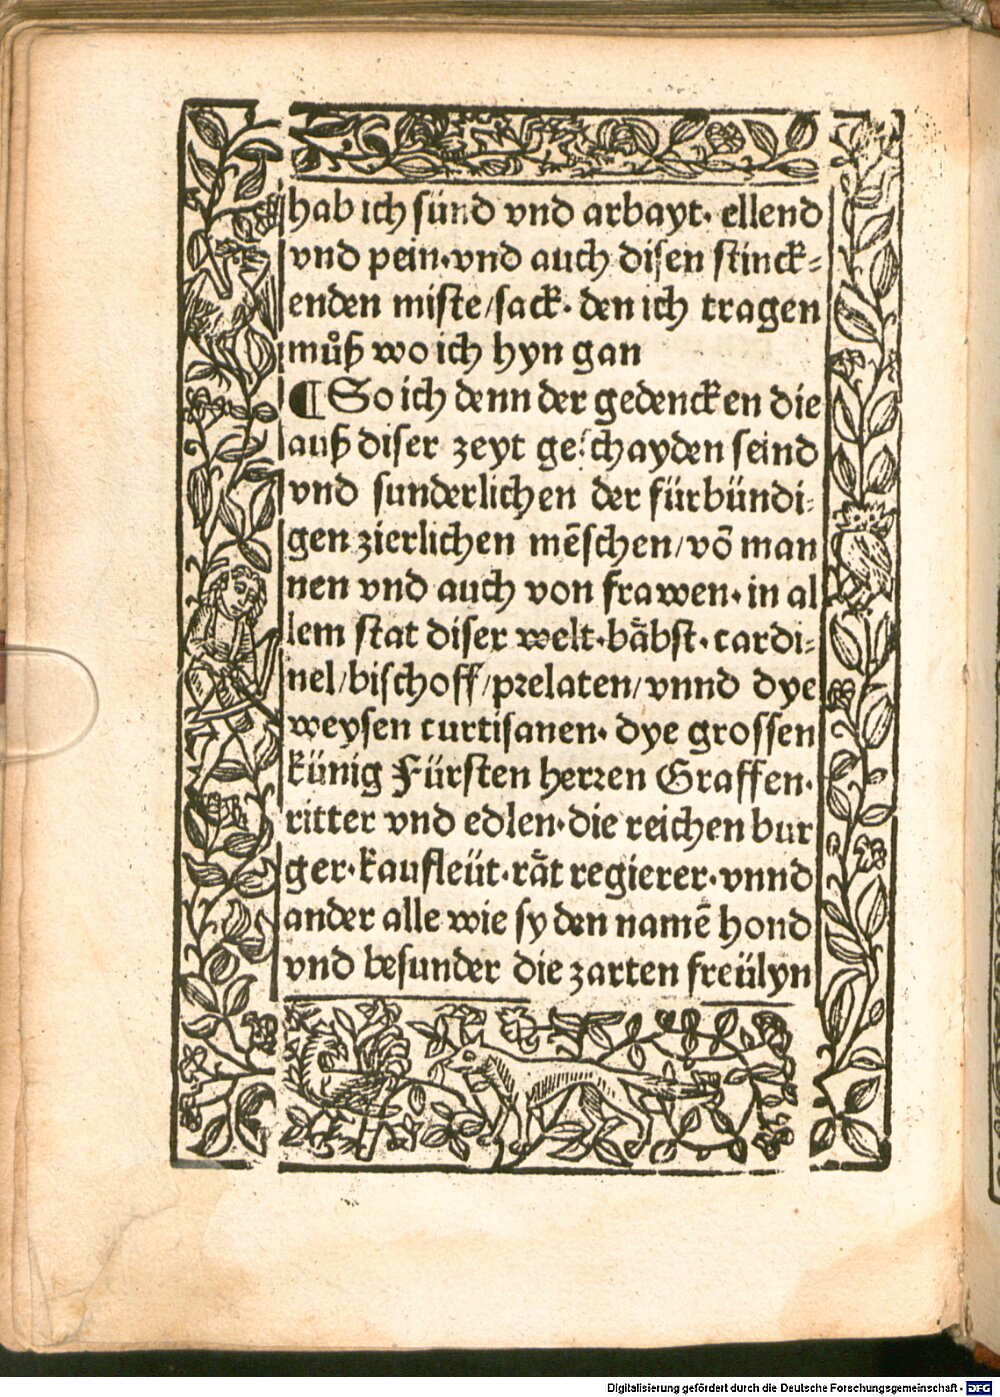 hab ich sünd vnd arbayt. ellend
vnd pein.vnd auch disen stinck-
enden miste/sack. den ich tragen
můß wo ich hyn gan
¶ So ich denn der gedencken die
auß diser zeyt geschayden seind
vnd sunderlichen der fürbündi-
gen zierlichen mēschen/vō man
nen vnd auch von frawen. in al
lem stat diser welt.bäbst. cardi-
nel/bischoff/prelaten/vnnd dye
weysen curtisanen. dye grossen
künig Fürsten herren Graffen.
ritter vnd edlen.die reichen bur
ger.kaufleüt.rät regierer.vnnd
ander alle wie sy den namē hond
vnd besunder die zarten freülyn
Digitalisierung gefördert durch die Deutsche Forschungsgemeinschaft - DFG